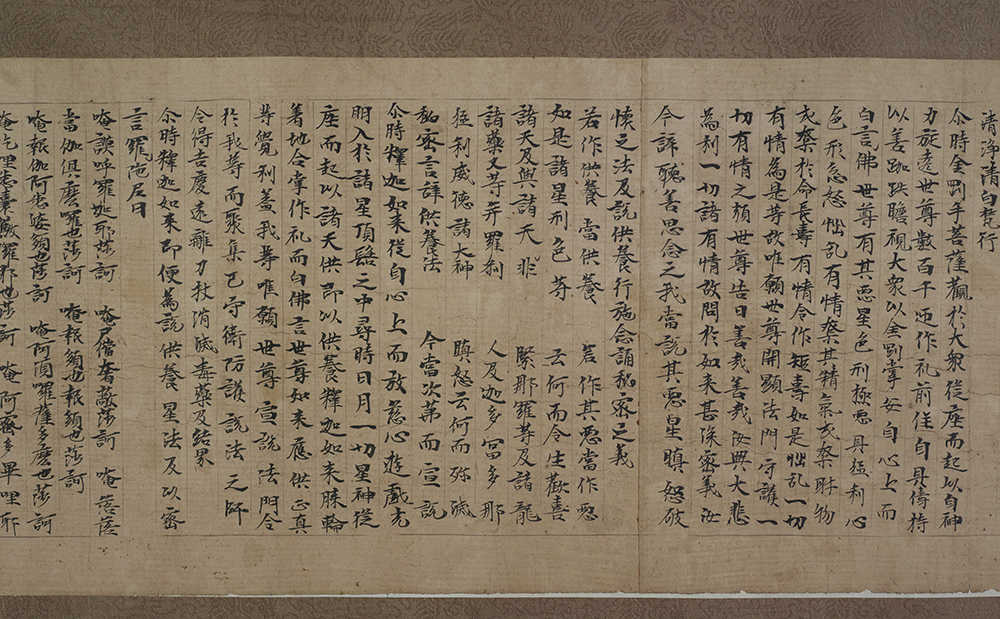 清淨清白梵行
尒時金剛手菩薩觀於大衆從座而起以自神
力旋遶世尊數百千迊作礼前住自具儔持
以善跏趺瞻視大衆以金剛掌安自心上而
白言佛世尊有其惡星色刑極惡具猛利心
色形忿怒惱乱有情奪其精氣或奪財物
或奪於命長壽有情令作短壽如是惱乱一切
有情為是等故唯願世尊開顯法門守護一
切有情之類世尊告曰善哉善哉汝興大悲
為利一切諸有情故問於如来甚深密義汝
今諦聽善思念之我當說其惡星瞋怒破
懷之法及說供養行施念誦秘密之義
若作供養 當供養 若作其惡當作惡
如是諸星刑色等 云何而令住歡喜
諸天及與諸天非 緊那羅等及諸龍
諸藥叉等并羅剎 人及多富多那
猛利威德諸大神 瞋怒云何而弥滅
秘密言詳供養法 今當次第而宣說
尒時釋迦如来從自心上而放慈心遊戲光
明入於諸星頂髻之中尋時日月一切星神從
座而起以諸天供即以供養釋迦如来膝輪
著地合掌作礼而白佛言世尊如来應供正真
等覺利益我等唯願世尊宣說法門令
於我等而聚集已守衛防護說法之師
令得吉慶遠離刀杖消滅毒藥及結界
尒時釋迦如来即便為說供養星法及以密
言羅陁尼曰
唵謨呼羅迦耶莎訶 唵尸儋奢莎訶 唵
當伽俱麼囉也莎訶 唵報須也莎訶
唵報伽阿悉婆須也莎訶 唵阿須囉薩多麽也莎訶
唵訖里悉拏皤羅那也莎訶 唵阿蜜多畢哩耶